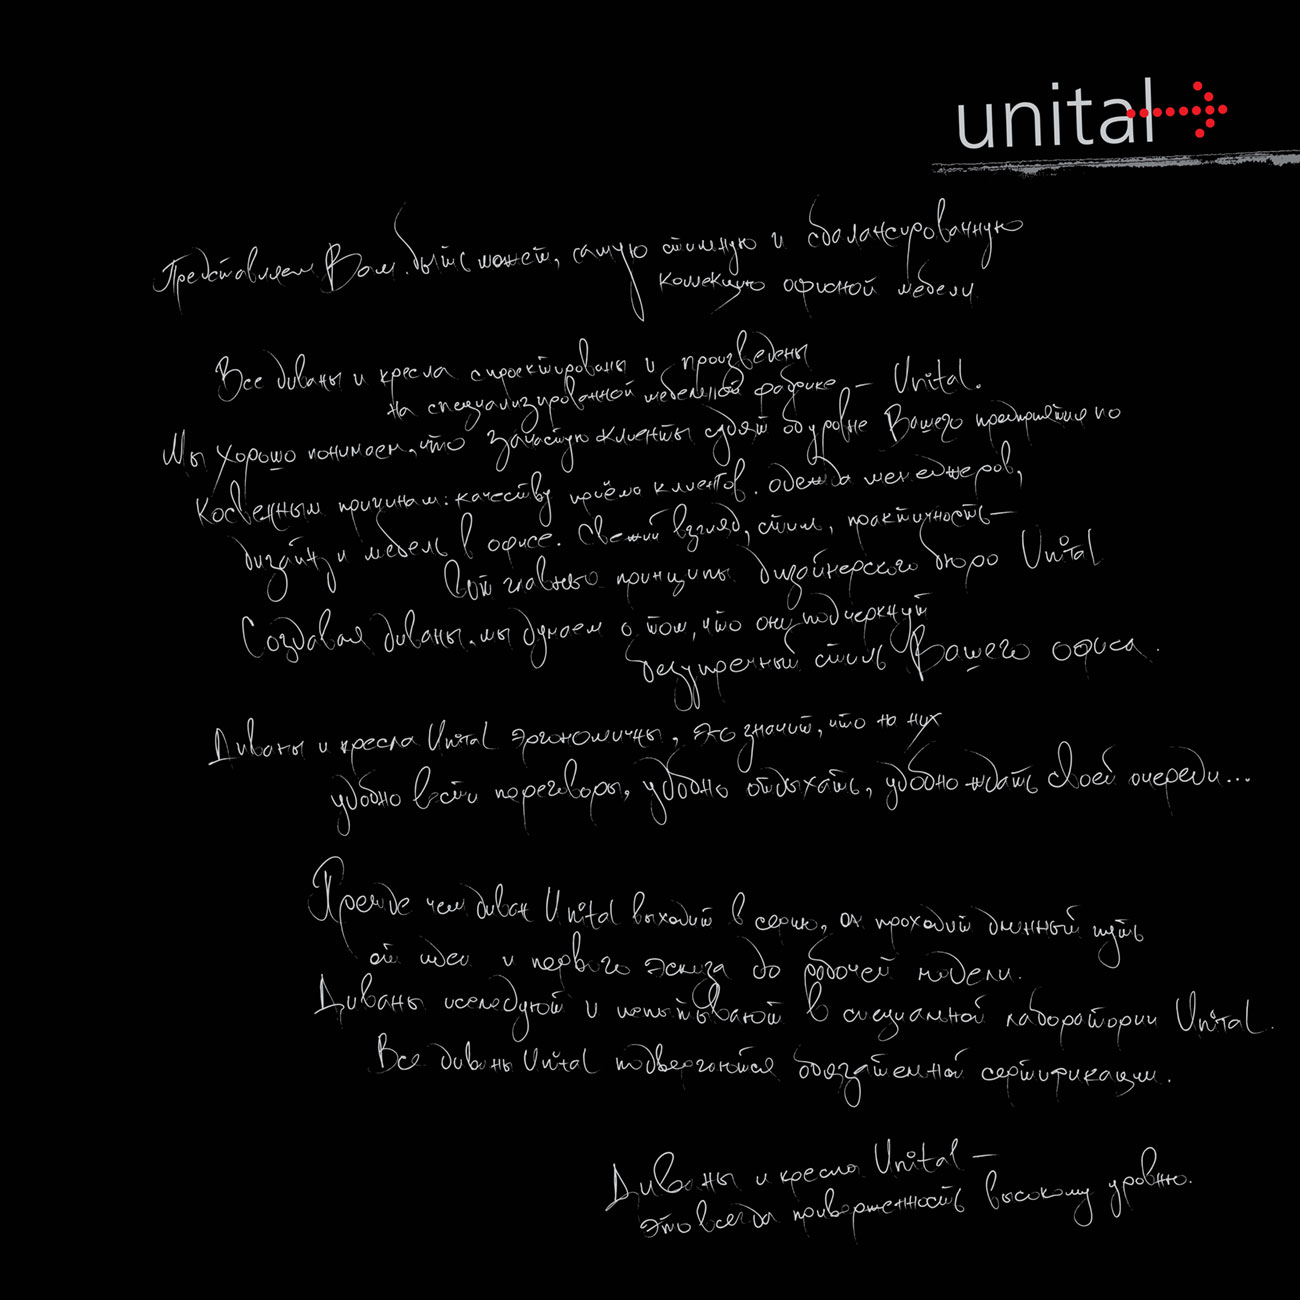 unital
Представляем Вам, быть может, самую стильную и сбалансированную
коллекцию офисной мебели
Все диваны и кресла спроектированы и произведены
на специализированной мебельной фабрике — Unital.
Мы хорошо понимаем, что зачастую клиенты судят об уровне Вашего предприятия по
косвенным причинам: качеству приёма клиентов, одежда менеджеров,
дизайн и мебель в офисе. Свежий взгляд, стиль, практичность —
вот главные принципы дизайнерского бюро Unital
Создавая диваны, мы думаем о том, что они подчеркнут
безупречный стиль Вашего офиса.
Диваны и кресла Unital эргономичны, это значит, что на них
удобно вести переговоры, удобно отдыхать, удобно ждать своей очереди...
Прежде чем диван Unital выходит в серию, он проходит длинный путь
от идеи и первого эскиза до рабочей модели.
Диваны иследуют и испытывают в специальной лаборатории Unital.
Все диваны Unital подвергаются обязательной сертификации.
Диваны и кресла Unital —
это всегда приверженность высокому уровню.